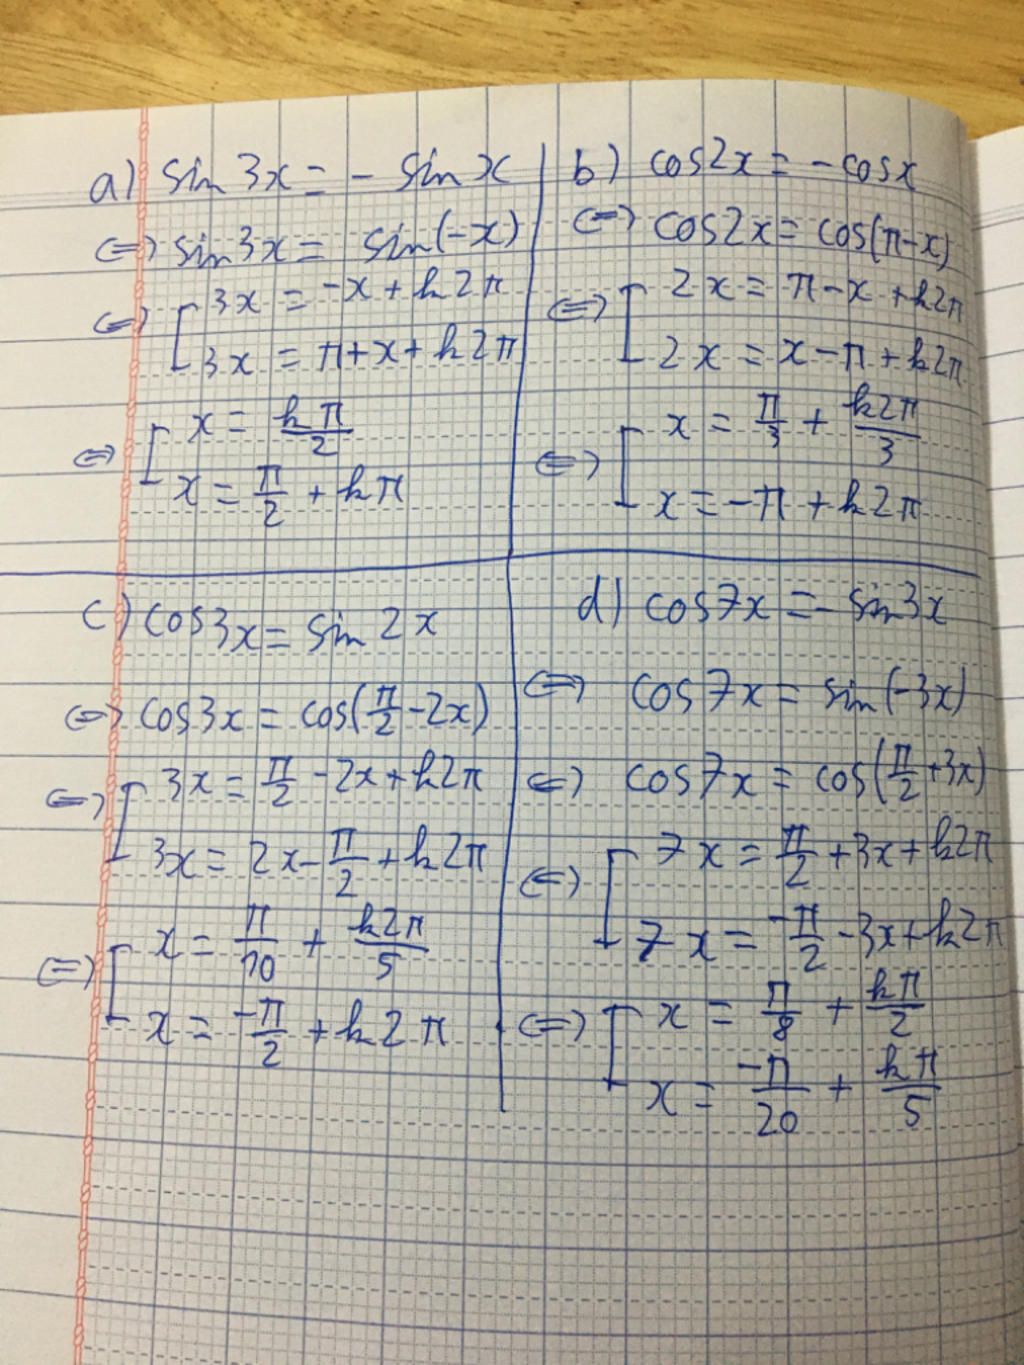 a) sin 3x = - sin x
⇔ sin 3x = sin(-x)
⇔ [ 3x = -x + k2π
3x = π + x + k2π
⇔ [ x = kπ/2
x = π/2 + kπ
b) cos2x = - cosx
⇔ cos2x = cos(π-x)
⇔ [ 2x = π - x + k2π
2x = x - π + k2π
⇔ [ x = π/3 + k2π/3
x = -π + k2π
c) cos3x = sin 2x
⇔ cos3x = cos(π/2 - 2x)
⇔ [ 3x = π/2 - 2x + k2π
3x = 2x - π/2 + k2π
⇔ [ x = π/10 + k2π/5
x = -π/2 + k2π
d) cos7x = - sin3x
⇔ cos7x = sin(-3x)
⇔ cos7x = cos(π/2 + 3x)
⇔ [ 7x = π/2 + 3x + k2π
7x = -π/2 - 3x + k2π
⇔ [ x = π/8 + kπ/2
x = -π/20 + kπ/5